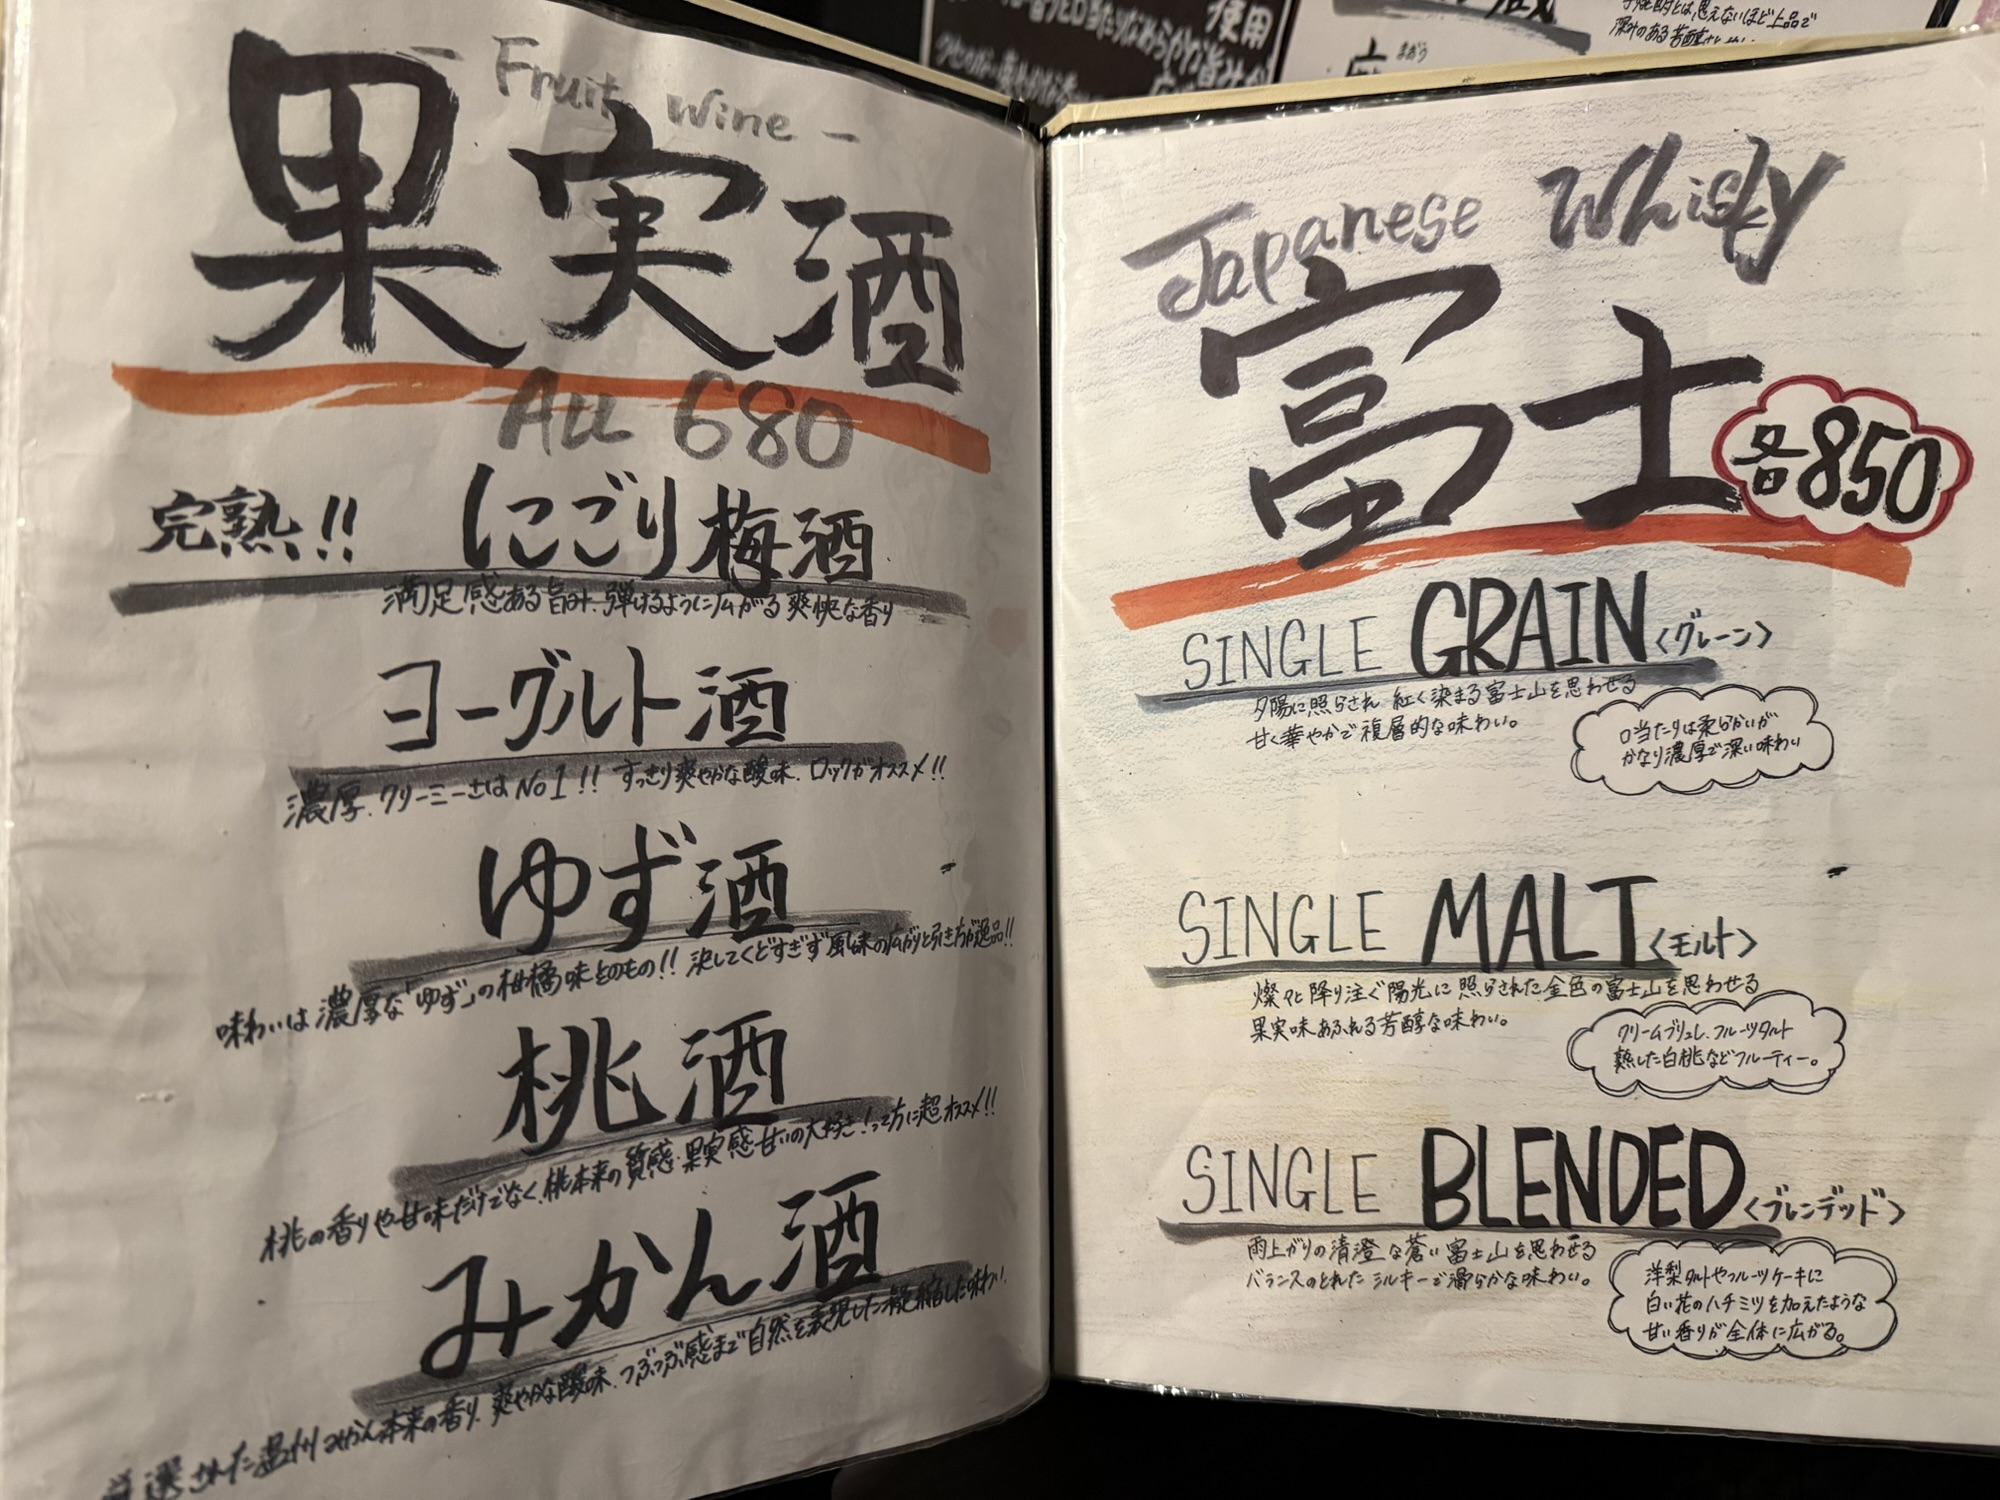 - Fruit Wine -
果実酒
All 680
完熟!! にごり梅酒
満足感ある旨み、弾けるように広がる爽快な香り
ヨーグルト酒
濃厚、クリーミーさはNo1!! すっきり爽やかな酸味、ロックがオススメ!!
ゆず酒
味わいは濃厚な「ゆず」の柑橘味そのもの!! 決してくどすぎず風味の広がりと引き方が逸品!!
桃酒
桃の香りや甘味だけでなく、桃本来の質感・果実感 甘いの大好き!って方に超オススメ!!
みかん酒
厳選された温州みかん本来の香り、爽やかな酸味、つぶつぶ感まで自然を表現した凝縮した味わい
使用
口当たりなめらかな旨みが
思えないほど上品で
深みのある芳醇な
Japanese Whisky
富士
各850
SINGLE GRAIN〈グレーン〉
夕陽に照らされ 紅く染まる富士山を思わせる
甘く華やかで複層的な味わい。
口当たりは柔らかいが
かなり濃厚で深い味わい
SINGLE MALT〈モルト〉
燦々と降り注ぐ陽光に照らされた金色の富士山を思わせる
果実味あふれる芳醇な味わい。
クリームブリュレ、フルーツタルト
熟した白桃などフルーティー。
SINGLE BLENDED〈ブレンデッド〉
雨上がりの清澄な蒼い富士山を思わせる
バランスのとれたシルキーで滑らかな味わい。
洋梨タルトやフルーツケーキに
白い花のハチミツを加えたような
甘い香りが全体に広がる。